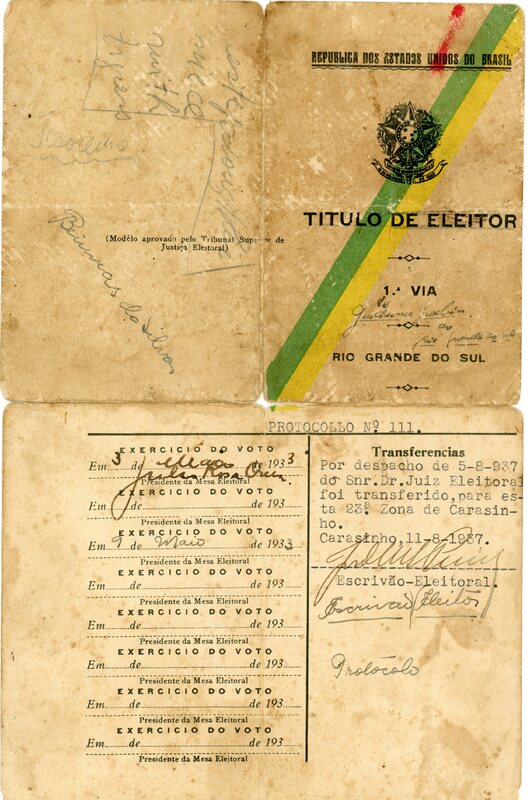 REPUBLICA DOS ESTADOS UNIDOS DO BRASIL
TITULO DE ELEITOR
1.ª VIA
de
Guilherme
do
Rio Grande do Sul
RIO GRANDE DO SUL
(Modêlo aprovado pelo Tribunal Superior de
Justiça Eleitoral)
da Silva
PROTOCOLLO Nº 111.
EXERCICIO DO VOTO
Em 3 de Maio de 1933
Julio Rosa Cruz
EXERCICIO DO VOTO
Em de de 193
Presidente da Mesa Eleitoral
EXERCICIO DO VOTO
Em 9 de Maio de 193
Presidente da Mesa Eleitoral
EXERCICIO DO VOTO
Em de de 193
Presidente da Mesa Eleitoral
EXERCICIO DO VOTO
Em de de 193
Presidente da Mesa Eleitoral
EXERCICIO DO VOTO
Em de de 193
Presidente da Mesa Eleitoral
EXERCICIO DO VOTO
Em de de 193
Presidente da Mesa Eleitoral
EXERCICIO DO VOTO
Em de de 193
Presidente da Mesa Eleitoral
Transferencias
Por despacho de 5-8-937
do Snr.Dr.Juiz Eleitoral
foi transferido,para es-
ta 23ª Zona de Carasin-
ho.
Carasinho,11-8-1937.
Escrivão-Eleitoral.
Escrivão Eleitor
Protócolo